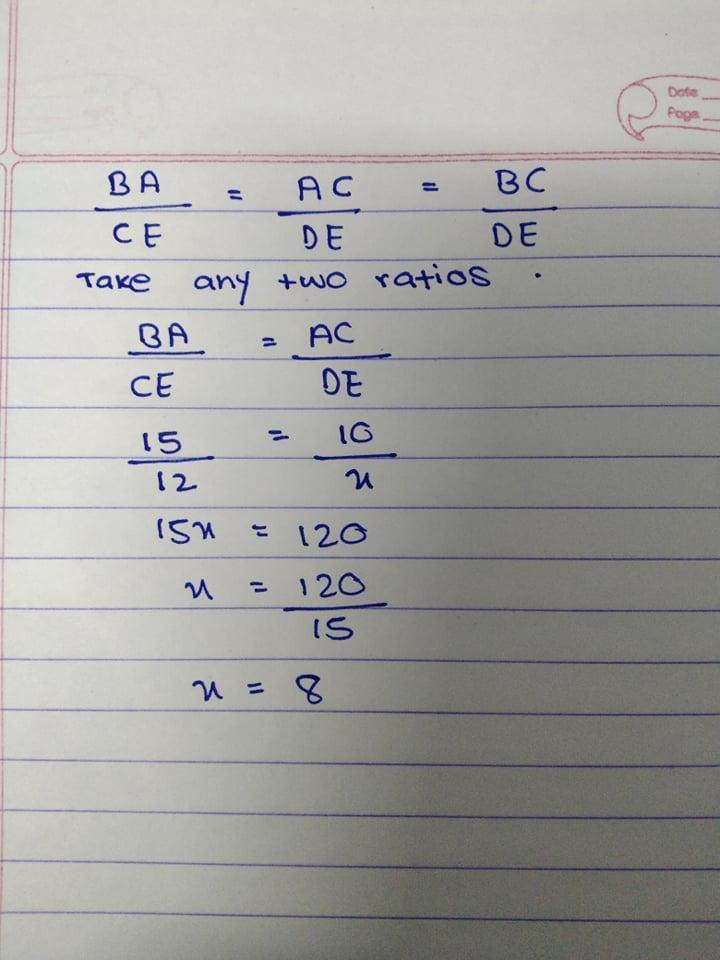 Date
Page
BA/CE = AC/DE = BC/DE
Take any two ratios .
BA/CE = AC/DE
15/12 = 10/x
15x = 120
x = 120/15
x = 8